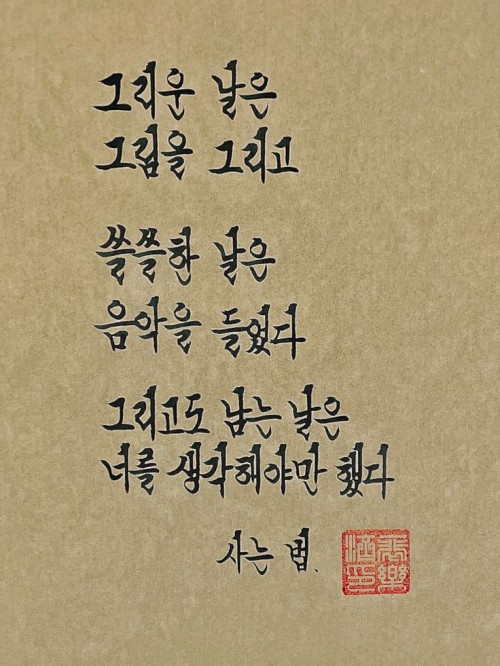 그리운 날은
그림을 그리고
쓸쓸한 날은
음악을 들었다
그리고도 남는 날은
너를 생각해야만 했다
사는 법.